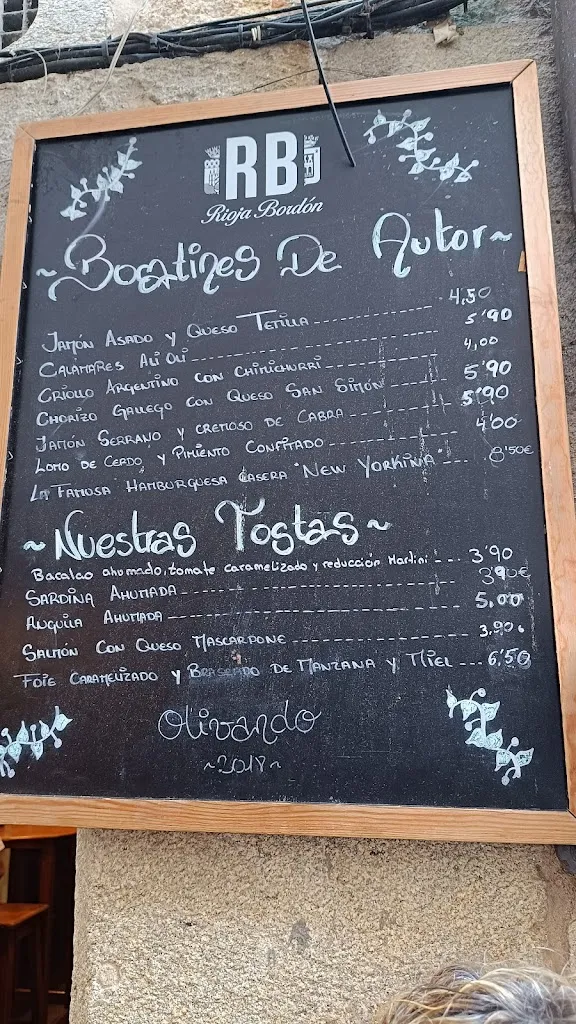 RB
Rioja Bordón
~Bocatines De Autor~
Jamón Asado y Queso Tetilla 4,50
Calamares Ali Oli 5'90
Criollo Argentino con Chimichurri 4,00
Chorizo Gallego con Queso San Simón 5'90
Jamón Serrano y cremoso de Cabra 5'90
Lomo de Cerdo y Pimiento Confitado 4'00
La Famosa Hamburguesa Casera "New Yorkina" 8'50€
~Nuestras Tostas~
Bacalao ahumado, tomate caramelizado y reducción Martini 3'90
Sardina Ahumada 3'90€
Anguila Ahumada 5,00
Salmón Con Queso Mascarpone 3,90€
Foie Caramelizado y Braseado de Manzana y Miel 6'50
Olivando
~2018~